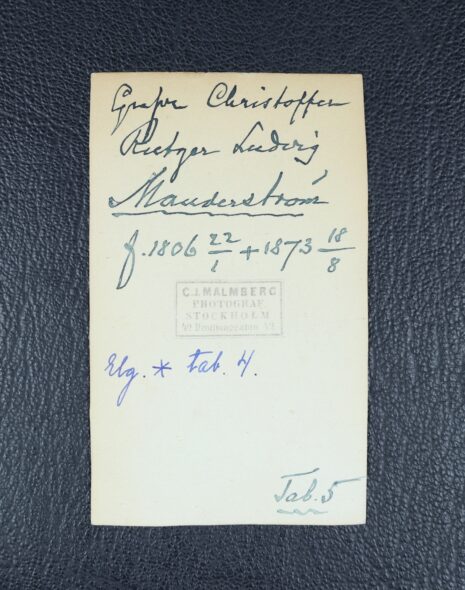 Grefve Christoffer
Rutger Ludvig
Manderström
f. 1806 22/1 + 1873 18/8
C.J. MALMBERG
PHOTOGRAF
STOCKHOLM
42 Drottninggatan 42.
Elg. * tab. 4.
Tab. 5